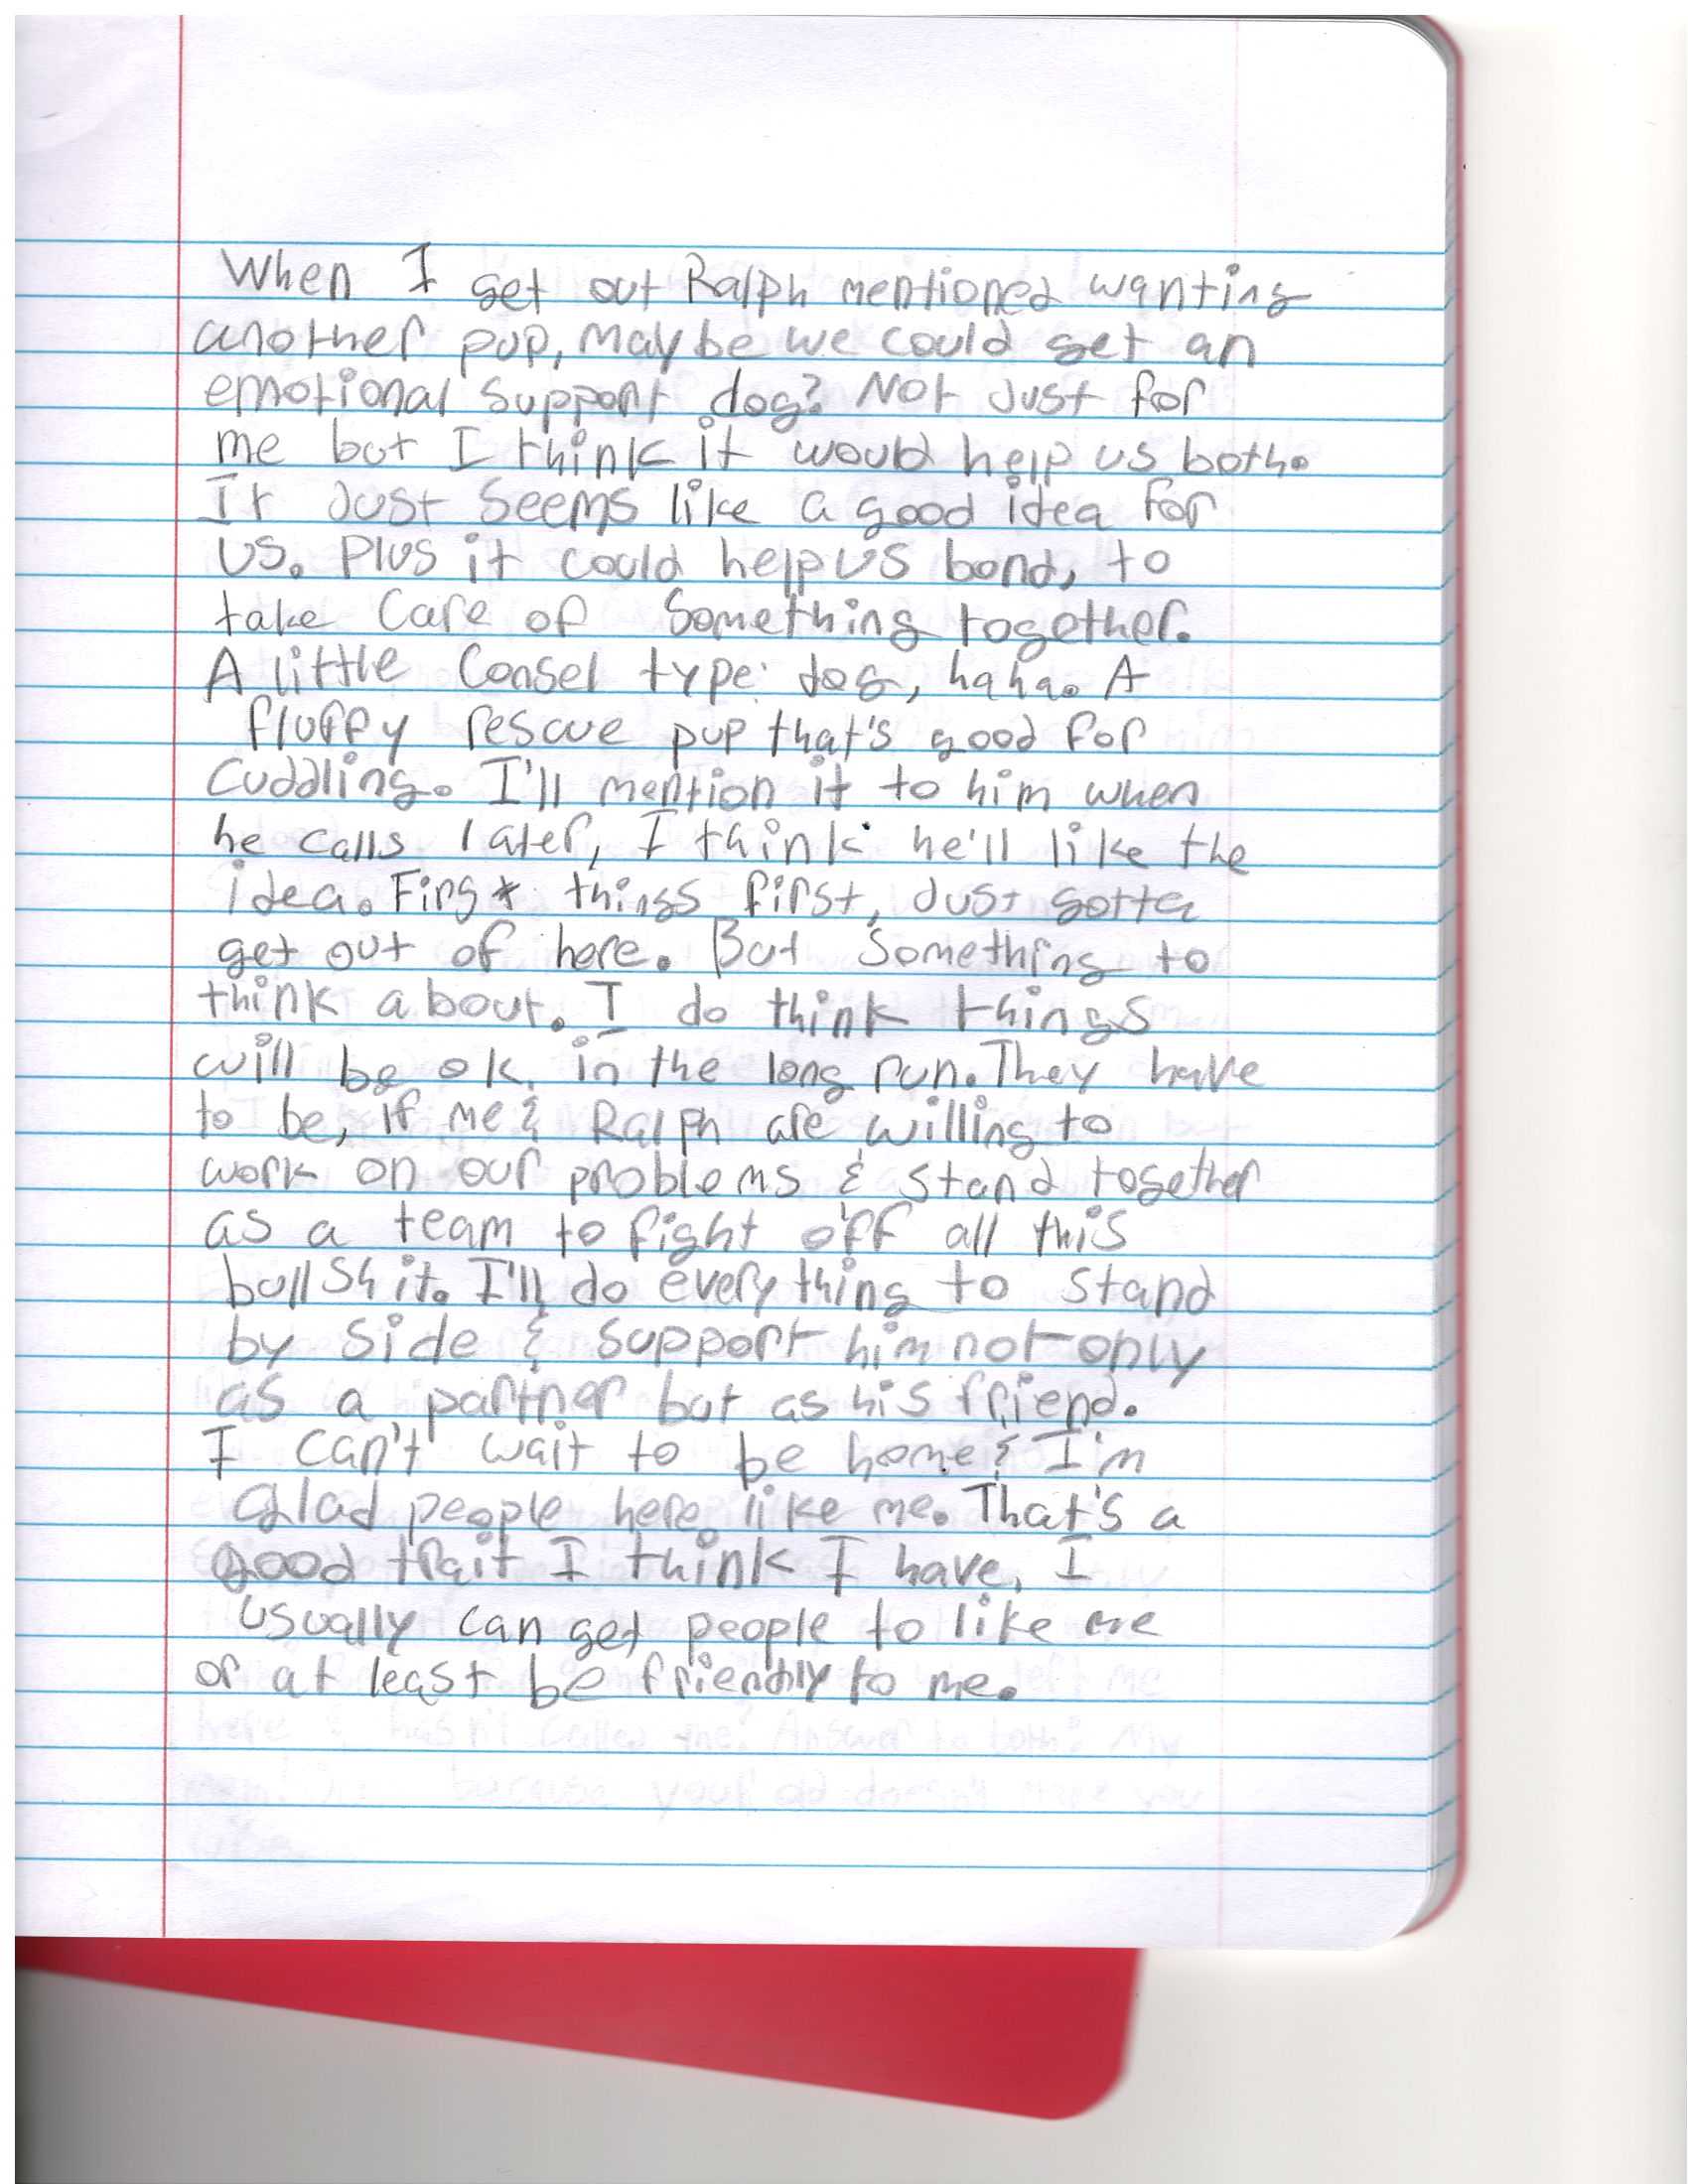 When I get out Ralph mentioned wanting
another pup, maybe we could get an
emotional support dog? Not Just for
me but I think it would help us both.
It Just seems like a good idea for
us. Plus it could help us bond, to
take care of something together.
A little Consel type dog, haha. A
fluffy rescue pup that's good for
cuddling. I'll mention it to him when
he calls later, I think he'll like the
idea. First things first, Just gotta
get out of here. But something to
think about. I do think things
will be ok in the long run. They have
to be, if me & Ralph are willing to
work on our problems & stand together
as a team to fight off all this
bullshit. I'll do everything to stand
by side & support him not only
as a partner but as his friend.
I can't wait to be home & I'm
Glad people here like me. That's a
good trait I think I have, I
usually can get people to like me
or at least be friendly to me.